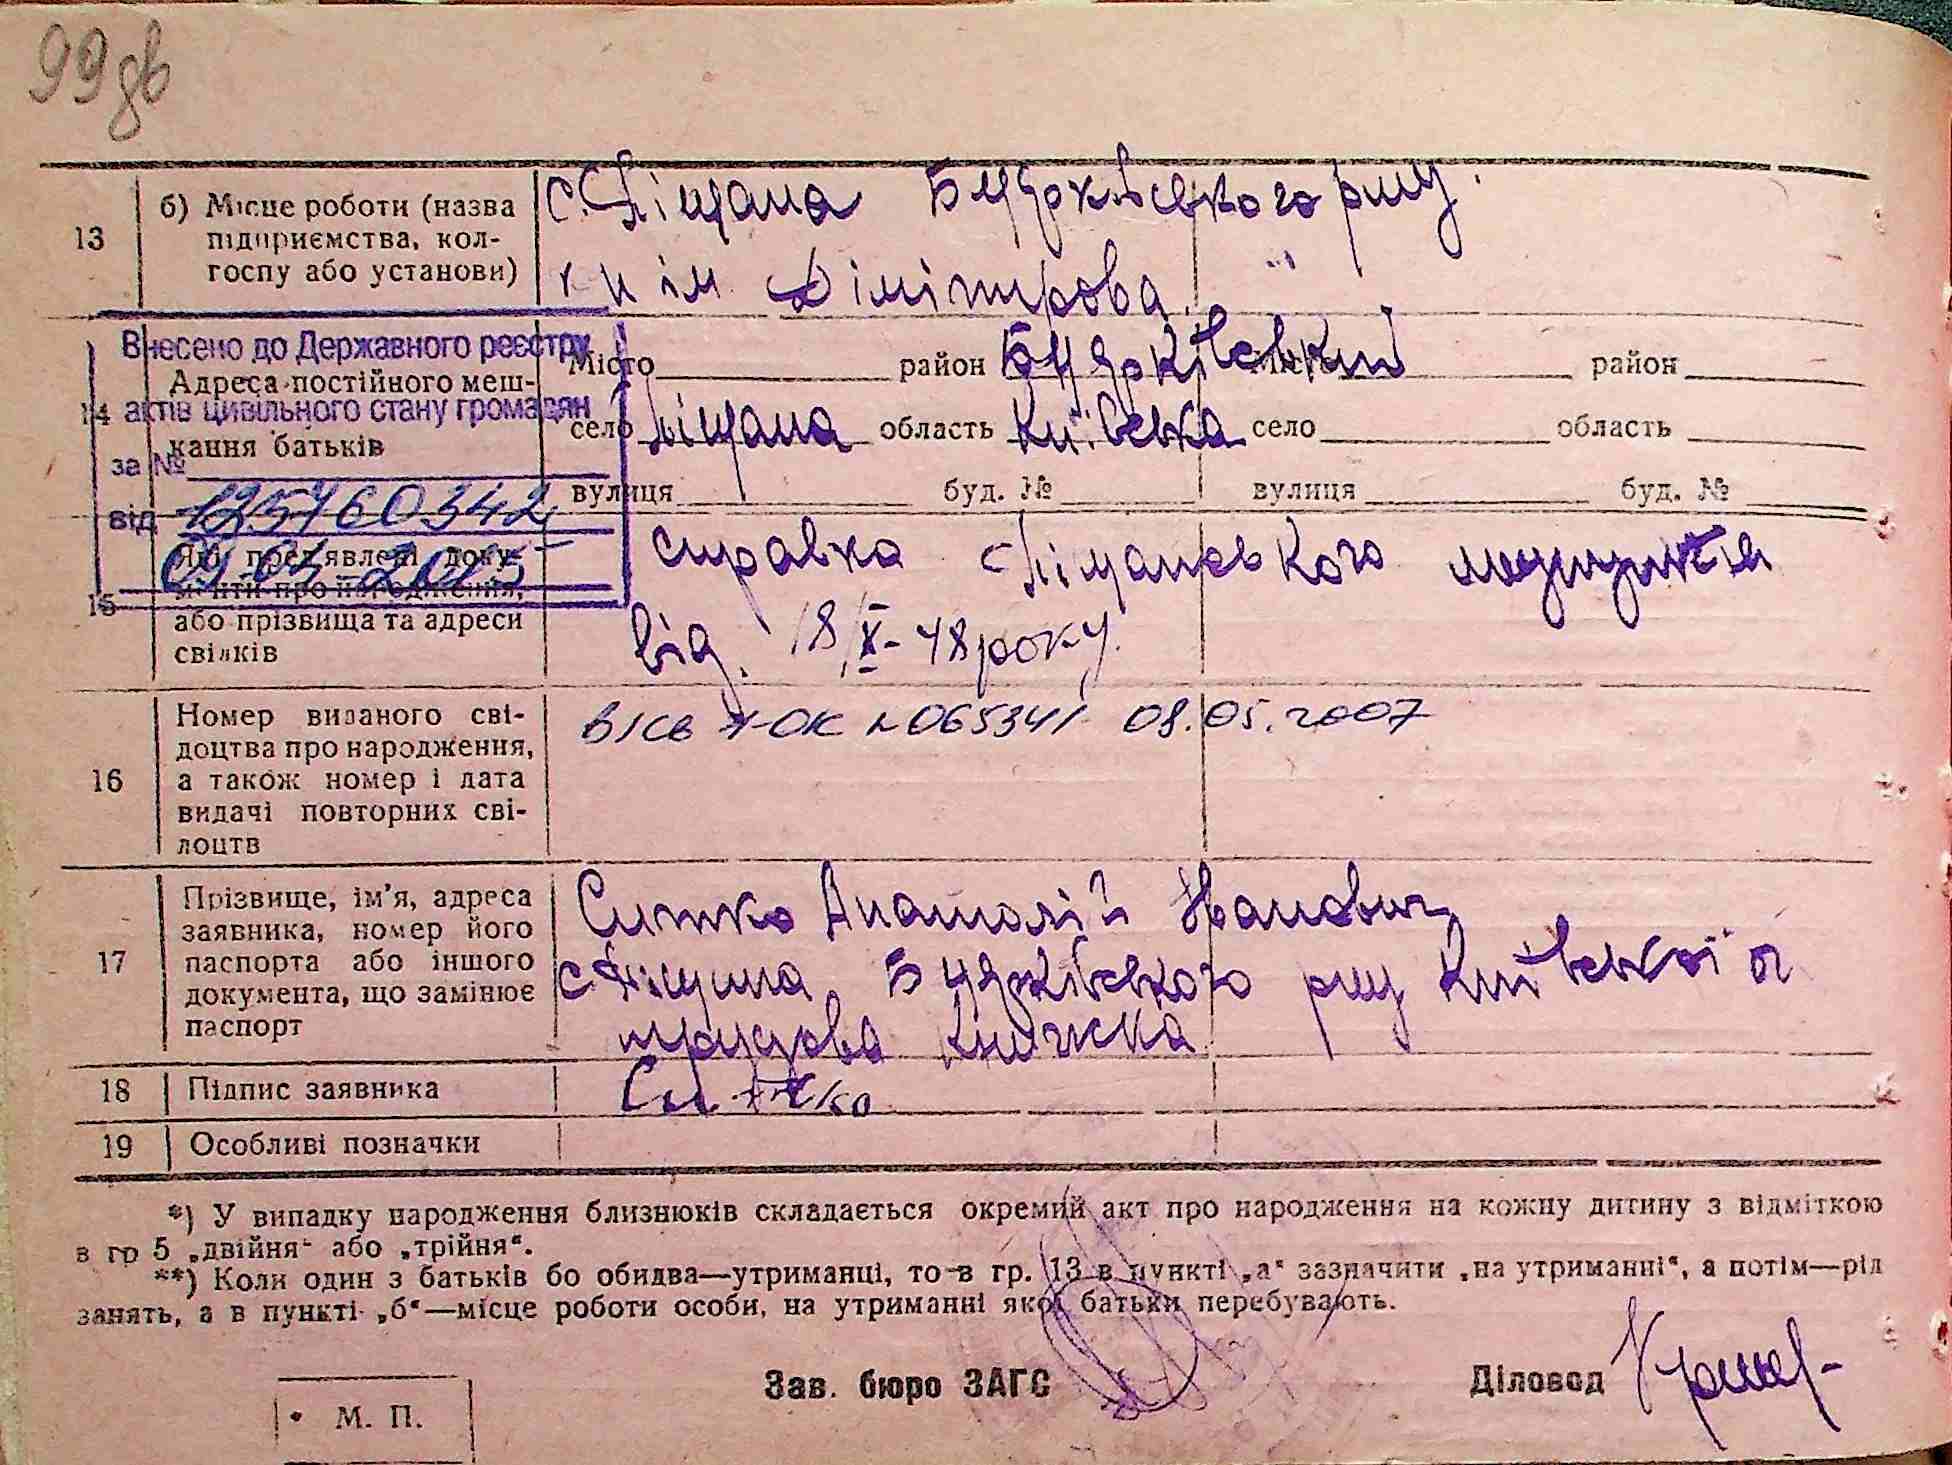 99 зв
13 б) Місце роботи (назва підприємства, колгоспу або установи)
с. Піщана Бзурківського р-ну
к-п ім. Дімітрова "
Внесено до Державного реєстру
актів цивільного стану громадян
за №
125760342
від
2015
14 Адреса постійного мешкання батьків
Місто район район
село Піщана область Київська село область
вулиця буд. № вулиця буд. №
15 Які пред'явлені документи про народження, або прізвища та адреси свідків
справка медпункта
від 18/X-48 року
16 Номер виданого свідоцтва про народження, а також номер і дата видачі повторних свідоцтв
в/св 1-ОК № 065341 08.05.2007
17 Прізвище, ім'я, адреса заявника, номер його паспорта або іншого документа, що замінює паспорт
Ситко Анатолій Іванович
с. Піщана р-ну Київської о
трудова книжка
18 Підпис заявника Ситко
19 Особливі позначки
*) У випадку народження близнюків складається окремий акт про народження на кожну дитину з відміткою
в гр 5 „двійня“ або „трійня“.
**) Коли один з батьків бо обидва—утриманці, то в гр. 13 в пункті „а“ зазначити „на утриманні“, а потім—рід
занять, а в пункті „б“—місце роботи особи, на утриманні якої батьки перебувають.
Зав. бюро ЗАГС Діловод
М. П.